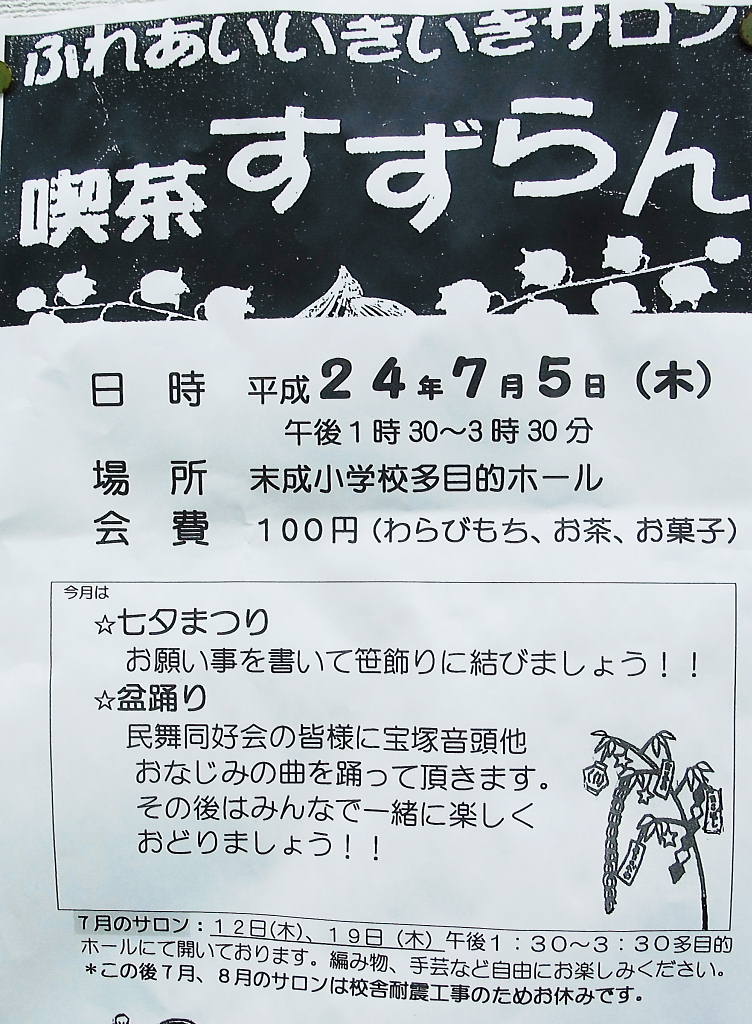 ふれあいいきいきサロン
喫茶すずらん
日 時 平成24年7月5日（木）
午後1時30～3時30分
場 所 末成小学校多目的ホール
会 費 100円（わらびもち、お茶、お菓子）
今月は
☆七夕まつり
お願い事を書いて笹飾りに結びましょう！！
☆盆踊り
民舞同好会の皆様に宝塚音頭他
おなじみの曲を踊って頂きます。
その後はみんなで一緒に楽しく
おどりましょう！！
7月のサロン：12日(木)、19日（木）午後1：30～3：30多目的
ホールにて開いております。編み物、手芸など自由にお楽しみください。
＊この後7月、8月のサロンは校舎耐震工事のためお休みです。